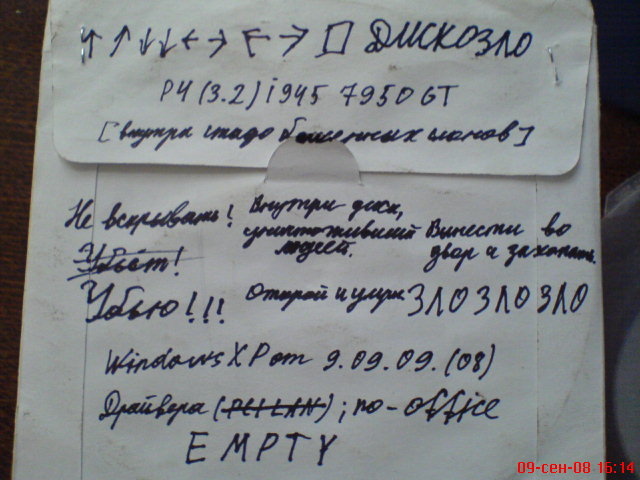 ↑↑↓↓←→←→□ ДИСКОЗЛО
P4 (3.2) i945 7950GT
[внутри стадо бешенных слонов]
Не вскрывать!
Убьёт!
Убью!!!
Внутри диск,
уничтоживший
людей.
Открой и умри
Вынести во
двор и закопать.
ЗЛО ЗЛО ЗЛО
Windows XP от 9.09.09.(08)
Драйвера (PCI LAN); no-office
EMPTY
09-сен-08 15:14